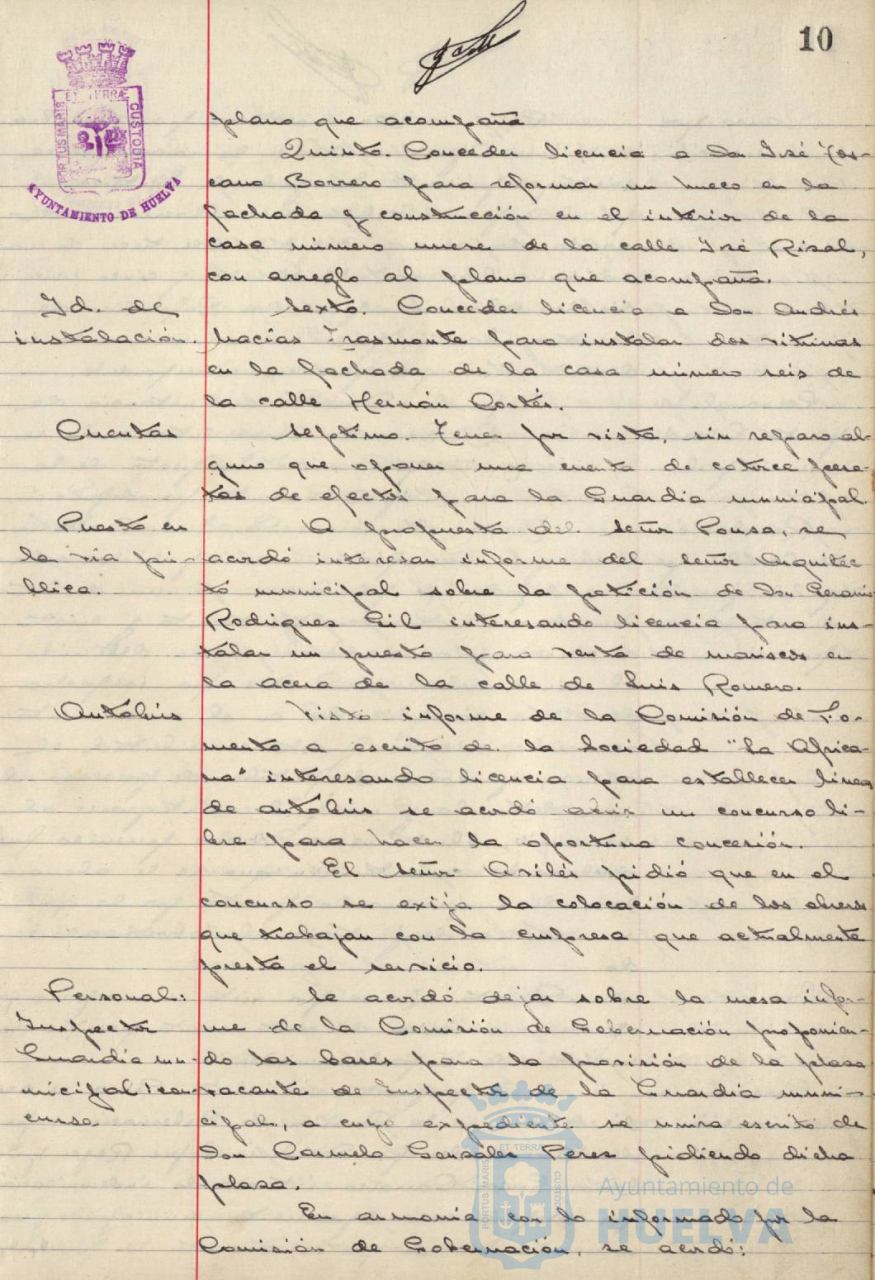 10
ET TERRÆ
PORTUS MARIS
CUSTODIA
AYUNTAMIENTO DE HUELVA
plano que acompaña
Quinto. Conceder licencia a Don José Tos-
cano Borrero para reformar un hueco en la
fachada y construcción en el interior de la
casa número nueve de la calle José Rizal,
con arreglo al plano que acompaña.
Id. de
instalación.
Sexto. Conceder licencia a Don Andrés
Macías Trasmonte para instalar dos vitrinas
en la fachada de la casa número seis de
la calle Hernán Cortés.
Cuentas
Séptimo. Tener por vista, sin reparo al-
guno que oponer una cuenta de catorce pese-
tas de efectos para la Guardia municipal.
Puesto en
la vía pú-
blica.
A propuesta del Señor Ponsa, se
acordó interesar informe del Señor Arquitec
to municipal sobre la petición de Don
Rodriguez Gil interesando licencia para ins-
talar un puesto para venta de mariscos en
la acera de la calle de Luis Romero.
Autobús
Visto informe de la Comisión de Fo-
mento a escrito de la Sociedad "La Africa-
na" interesando licencia para establecer linea
de autobús se acordó abrir un concurso li-
bre para hacer la oportuna concesión.
El Señor Avilés pidió que en el
concurso se exija la colocación de los obreros
que trabajan con la empresa que actualmente
presta el servicio.
Personal:
Inspector
Guardia mu-
nicipal: con-
curso
Se acordó dejar sobre la mesa infor-
me de la Comisión de Gobernación proponien-
do las bases para la provisión de la plaza
vacante de Inspector de la Guardia muni-
cipal, a cuyo expediente se unirá escrito de
Don Carmelo González Perez pidiendo dicha
plaza.
En armonía con lo informado por la
Comisión de Gobernación, se acordó:
ET TERRÆ
PORTUS MARIS
CUSTODIA
Ayuntamiento de
HUELVA